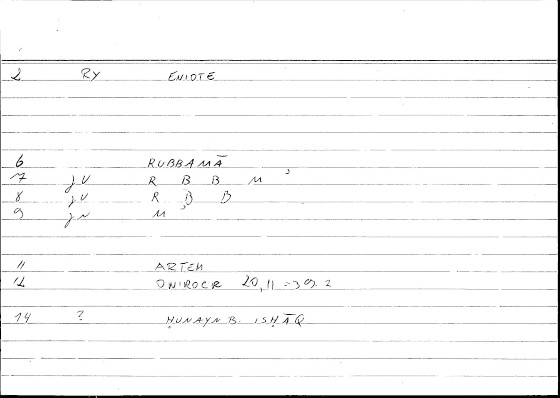 2 RY ENIOTE
6 RUBBAMĀ
7 jU R B B M ʾ
8 jU R B B
9 jn M ʾ
11 ARTEM
12 ONIROCR 20,11 = 39.2
14 ? ḤUNAYN B. ISḤĀQ